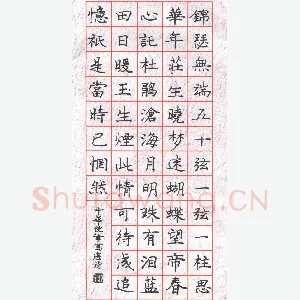 錦瑟無端五十弦一弦一柱思
華年莊生曉梦迷蝴蝶望帝春
心託杜鹃滄海月明珠有泪蓝
田日暖玉生煙此情可待成追
憶祇是當時已惘然
Shufawang.CN